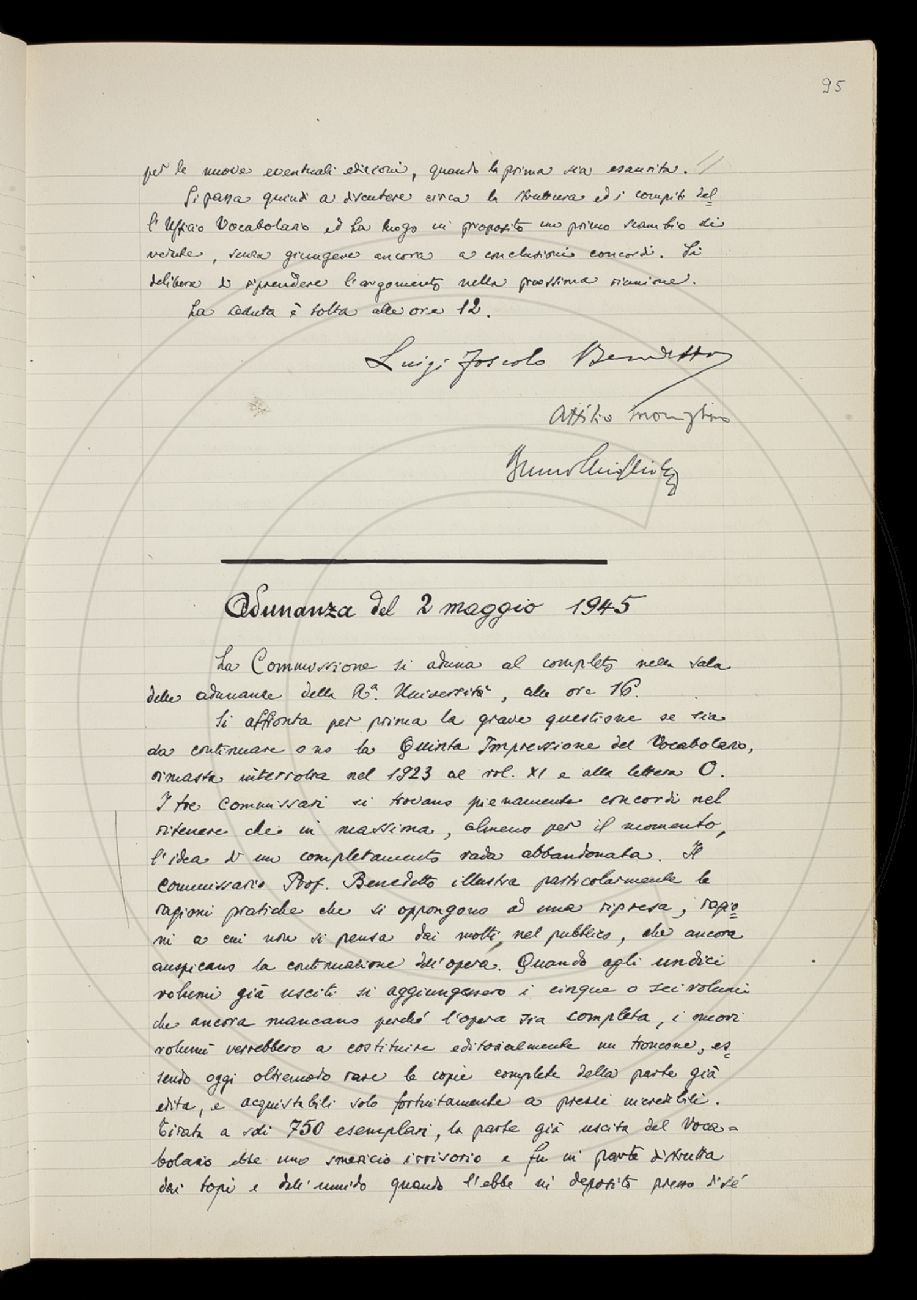 95
per le nuove eventuali edizioni, quando la prima sia esaurita. //
Si passa quindi a discutere circa la struttura ed i compiti del=
l'Ufficio Vocabolario ed ha luogo in proposito un primo scambio di
vedute, senza giungere ancora a conclusioni concordi. Si
delibera di riprendere l'argomento nella prossima riunione.
La seduta è tolta alle ore 12.
Luigi Foscolo Benedetto
Attilio Momigliano
Bruno Migliorini
Adunanza del 2 maggio 1945
La Commissione si aduna al completo nella sala
delle adunanze della R.ª Università, alle ore 16.
Si affronta per prima la grave questione se sia
da continuare o no la Quinta Impressione del Vocabolario,
rimasta interrotta nel 1923 al vol. XI e alla lettera O.
I tre commissari si trovano pienamente concordi nel
ritenere che in massima, almeno per il momento,
l'idea di un completamento vada abbandonata. Il
commissario Prof. Benedetto illustra particolarmente le
ragioni pratiche che si oppongono ad una ripresa, ragio=
ni a cui non si pensa dai molti, nel pubblico, che ancora
auspicano la continuazione dell'opera. Quando agli undici
volumi già usciti si aggiungessero i cinque o sei volumi
che ancora mancano perché l'opera sia completa, i nuovi
volumi verrebbero a costituire editorialmente un troncone, es=
sendo oggi oltremodo rare le copie complete della parte già
edita, e acquistabili solo fortuitamente a prezzi incredibili.
Tirata a soli 750 esemplari, la parte già uscita del Voca=
bolario ebbe uno smercio irrisorio e fu in parte distrutta
dai topi e dall'umido quando l'ebbe in deposito presso di sé